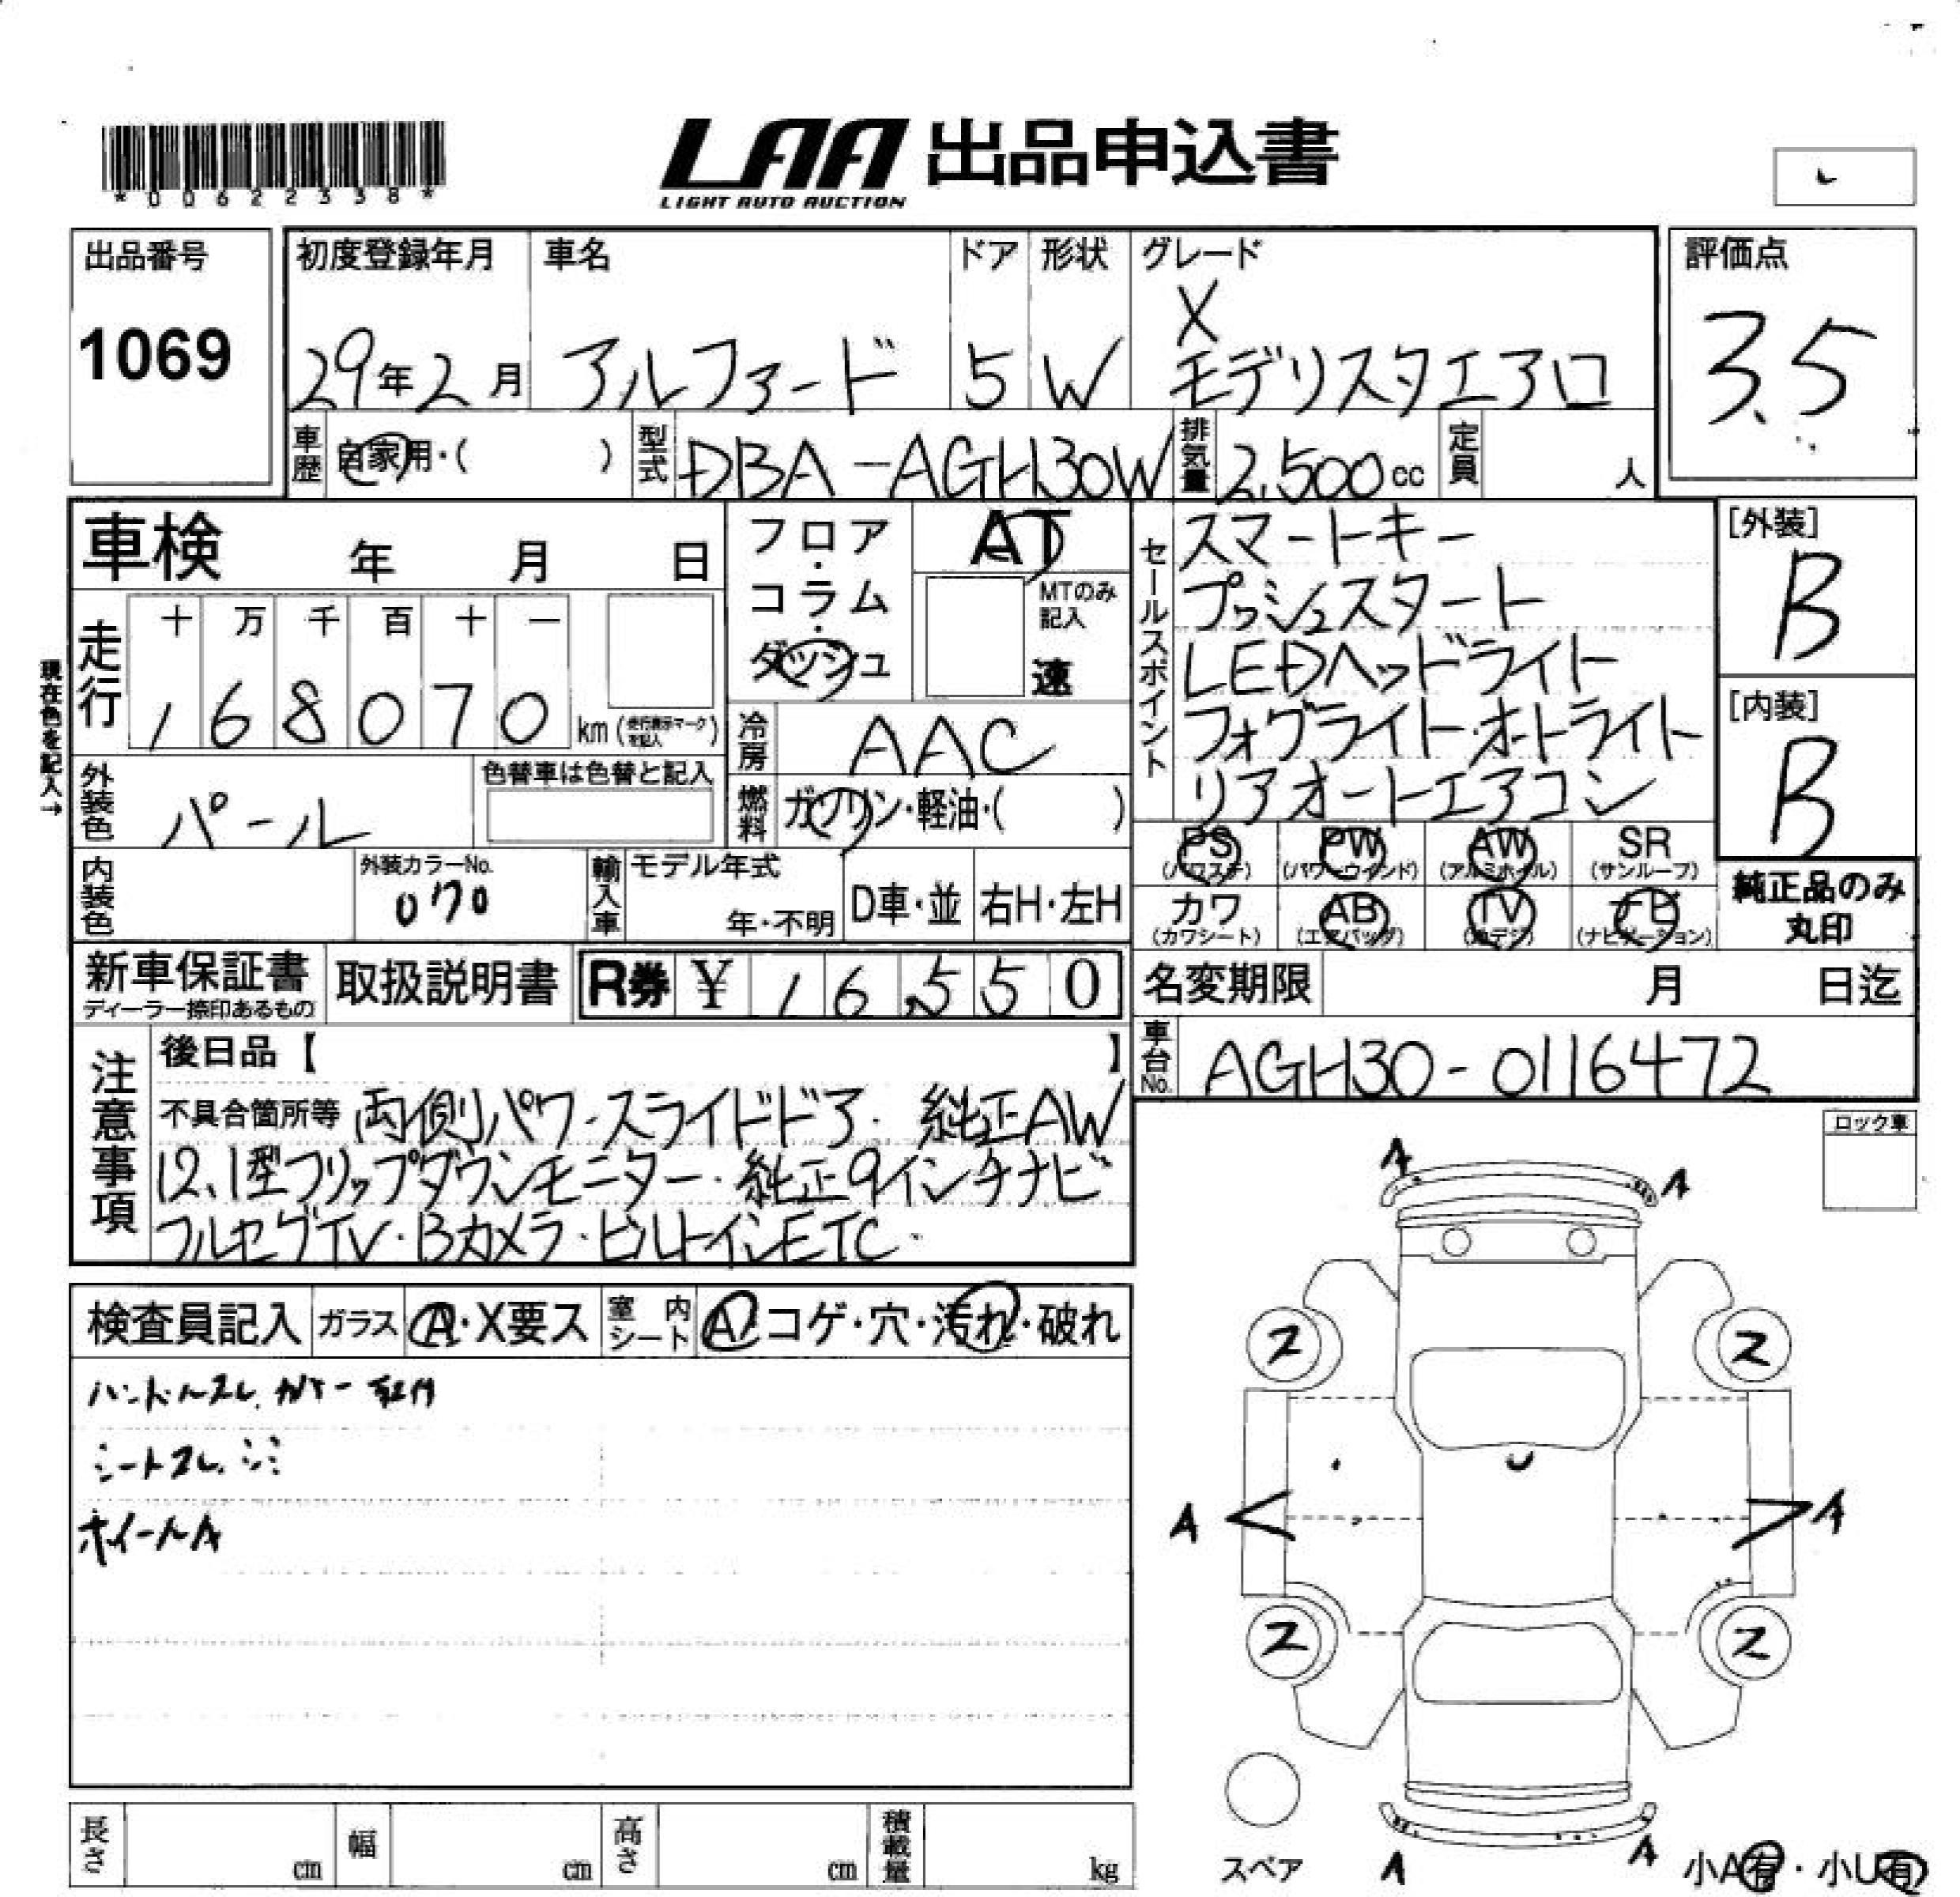 *00622338*
LAA 出品申込書
LIGHT AUTO AUCTION
出品番号
1069
初度登録年月 車名 ドア 形状 グレード
29年2月 アルファード 5 W X
モデリスタエアロ
評価点
3.5
車歴 自家用・( ) 型式 DBA-AGH30W 排気量 2,500cc 定員 人
車検 年 月 日
フロア・コラム・ダッシュ
AT
MTのみ記入
速
現在色を記入→
走行 十 万 千 百 十 一
168070 km (走行表示マークを記入)
冷房 AAC
外装色 パール
色替車は色替と記入
燃料 ガソリン・軽油・( )
内装色
外装カラーNo.
070
輸入車 モデル年式
年・不明 D車・並 右H・左H
セールスポイント
スマートキー
プッシュスタート
LEDヘッドライト
フォグライト・オートライト
リアオートエアコン
[外装]
B
[内装]
B
PS PW AW SR
(パワステ) (パワーウインド) (アルミホイル) (サンルーフ)
カワ AB TV ナビ
(カワシート) (エアバッグ) (地デジ) (ナビゲーション)
純正品のみ
丸印
新車保証書 取扱説明書 R券 ¥ 16,550
ディーラー捺印あるもの
名変期限 月 日迄
車台No. AGH30-0116472
注意事項
後日品【 】
不具合箇所等 両側パワースライドドア・純正AW
12.1型フリップダウンモニター・純正9インチナビ
フルセグTV・Bカメラ・ビルトインETC.
ロック車
検査員記入 ガラス A・X要ス 室内シート A コゲ・穴・汚れ・破れ
ハンドルスレ.カバー取付
シートスレ.シミ
ホイールA
A A
ス ス
A A
ス ス
A A
スペア
小A有・小U有
長さ cm 幅 cm 高さ cm 積載量 kg